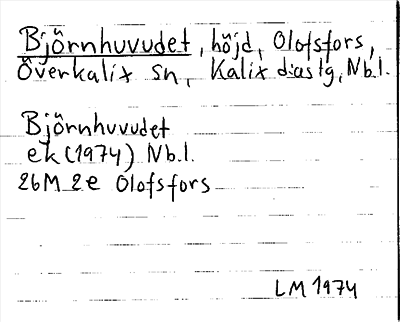 Björnhuvudet, höjd, Olofsfors,
Överkalix sn, Kalix d:astg, Nb.l.
Björnhuvudet
ek (1974) Nb.l.
26M 2e Olofsfors
LM 1974